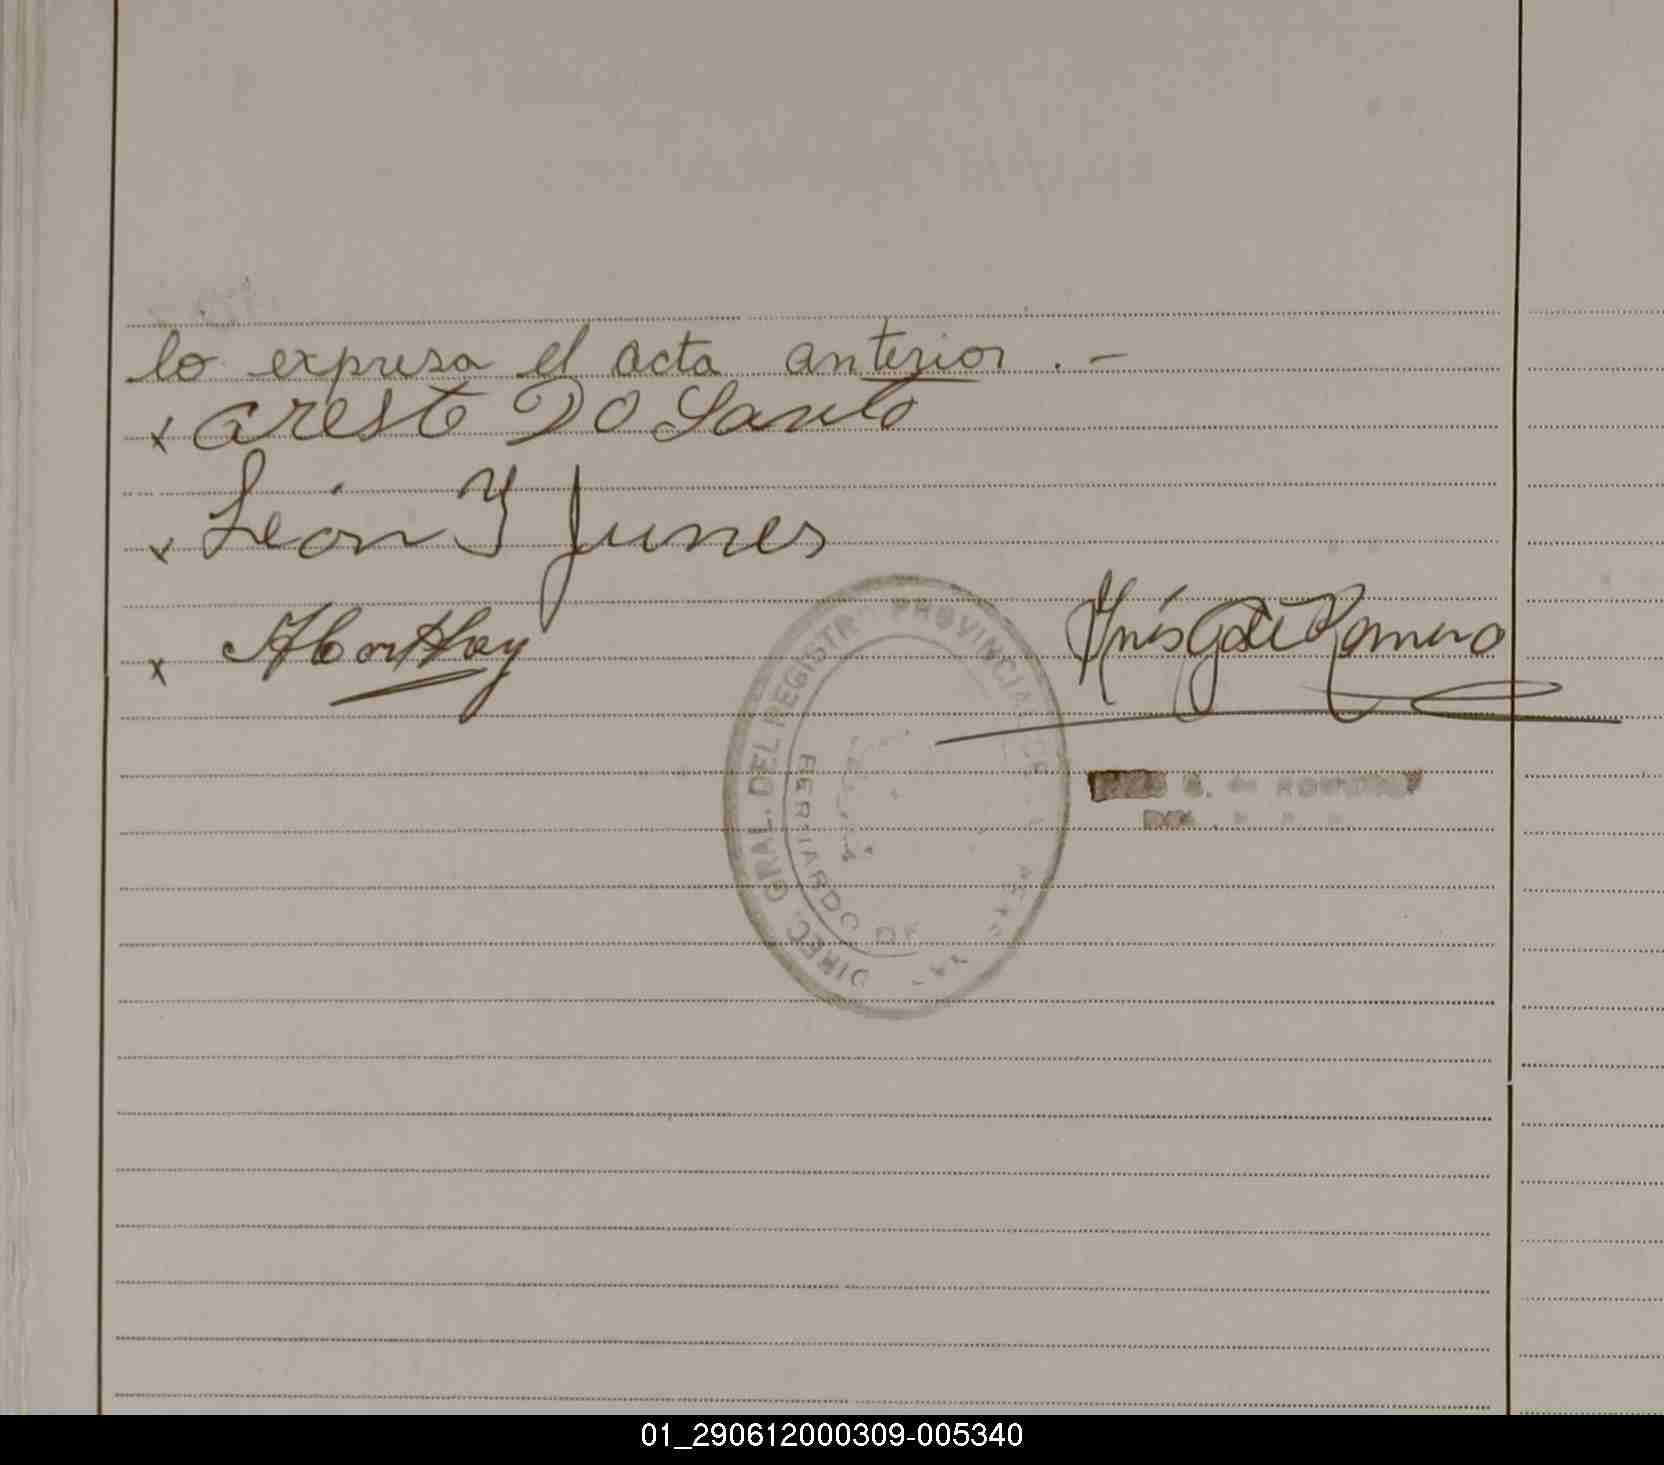 lo expresa el acta anterior . -
x Oreste Do Santo
x León Y Junes
x
Inés G de Romero
DIREC. GRAL. DEL REGISTR PROVINCIA
BERNARDO DE
G. de ROMERO
01_290612000309-005340